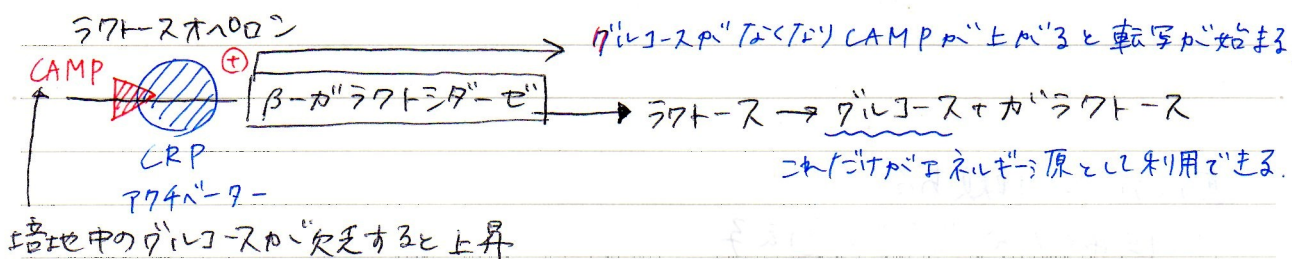 ラクトースオペロン
グルコースがなくなりCAMPが上がると転写が始まる
CAMP
⊕
β-ガラクトシダーゼ
ラクトース → グルコース + ガラクトース
CRP
アクチベーター
これだけがエネルギー源として利用できる.
培地中のグルコースが欠乏すると上昇